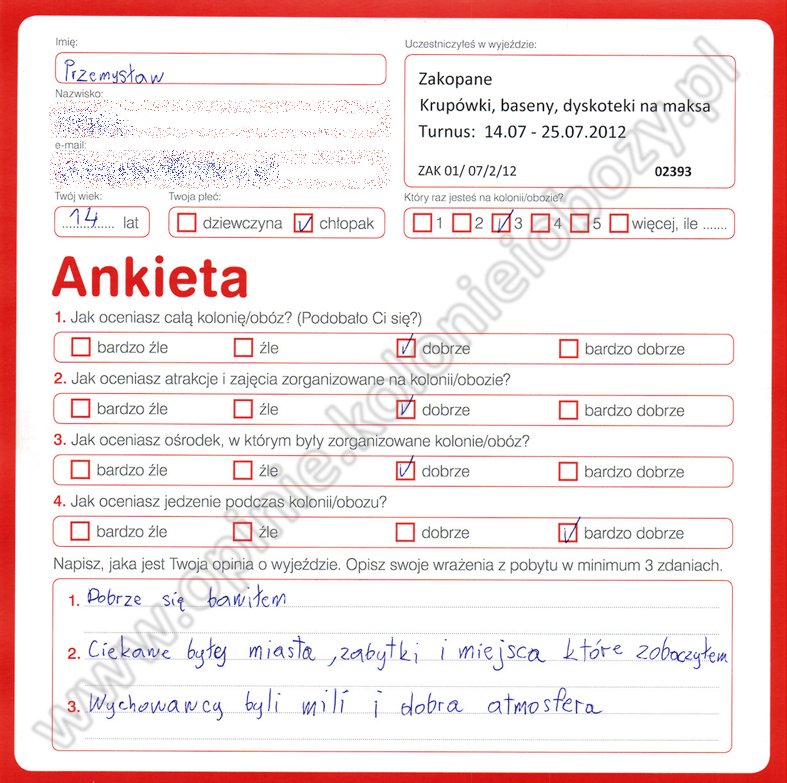 Imię:
Przemysław
Nazwisko:
e-mail:
Twój wiek:
14 lat
Twoja płeć:
dziewczyna chłopak
Uczestniczyłeś w wyjeździe:
Zakopane
Krupówki, baseny, dyskoteki na maksa
Turnus: 14.07 - 25.07.2012
ZAK 01/ 07/2/12 02393
Który raz jesteś na kolonii/obozie?
1 2 3 4 5 więcej, ile .......
Ankieta
1. Jak oceniasz całą kolonię/obóz? (Podobało Ci się?)
bardzo źle źle dobrze bardzo dobrze
2. Jak oceniasz atrakcje i zajęcia zorganizowane na kolonii/obozie?
bardzo źle źle dobrze bardzo dobrze
3. Jak oceniasz ośrodek, w którym były zorganizowane kolonie/obóz?
bardzo źle źle dobrze bardzo dobrze
4. Jak oceniasz jedzenie podczas kolonii/obozu?
bardzo źle źle dobrze bardzo dobrze
Napisz, jaka jest Twoja opinia o wyjeździe. Opisz swoje wrażenia z pobytu w minimum 3 zdaniach.
1. Dobrze się bawiłem
2. Ciekawe były miasta, zabytki i miejsca które zobaczyłem
3. Wychowawcy byli mili i dobra atmosfera
www.opinie.kolonieiobozy.pl